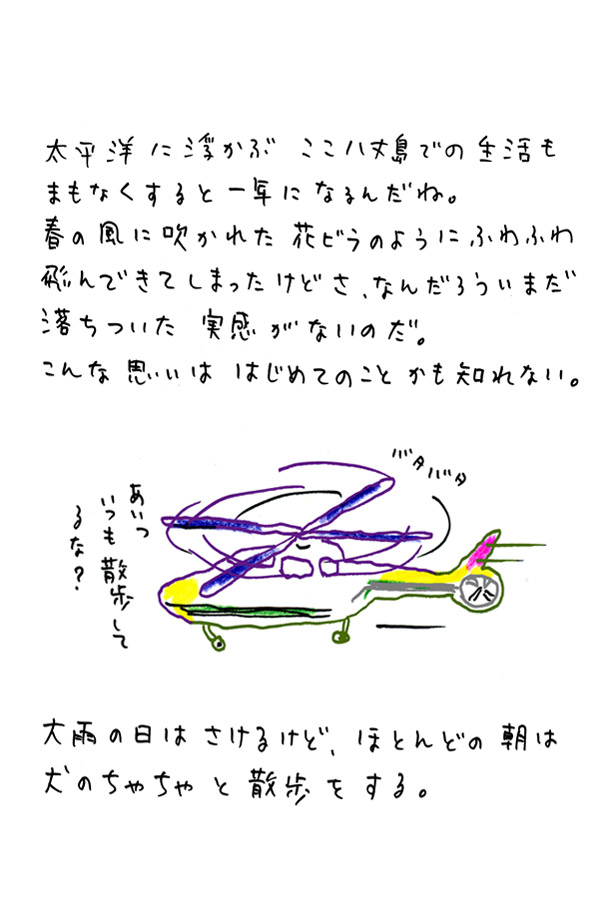 太平洋に浮かぶ ここ八丈島での生活も
まもなくすると一年になるんだね。
春の風に吹かれた花ビラのようにふわふわ
飛んできてしまったけどさ、なんだろういまだ
落ちついた 実感がないのだ。
こんな思いは はじめてのことかも知れない。
バタバタ
あいつ
いつも散歩して
るな?
大雨の日はさけるけど、ほとんどの朝は
犬のちゃちゃと散歩をする。